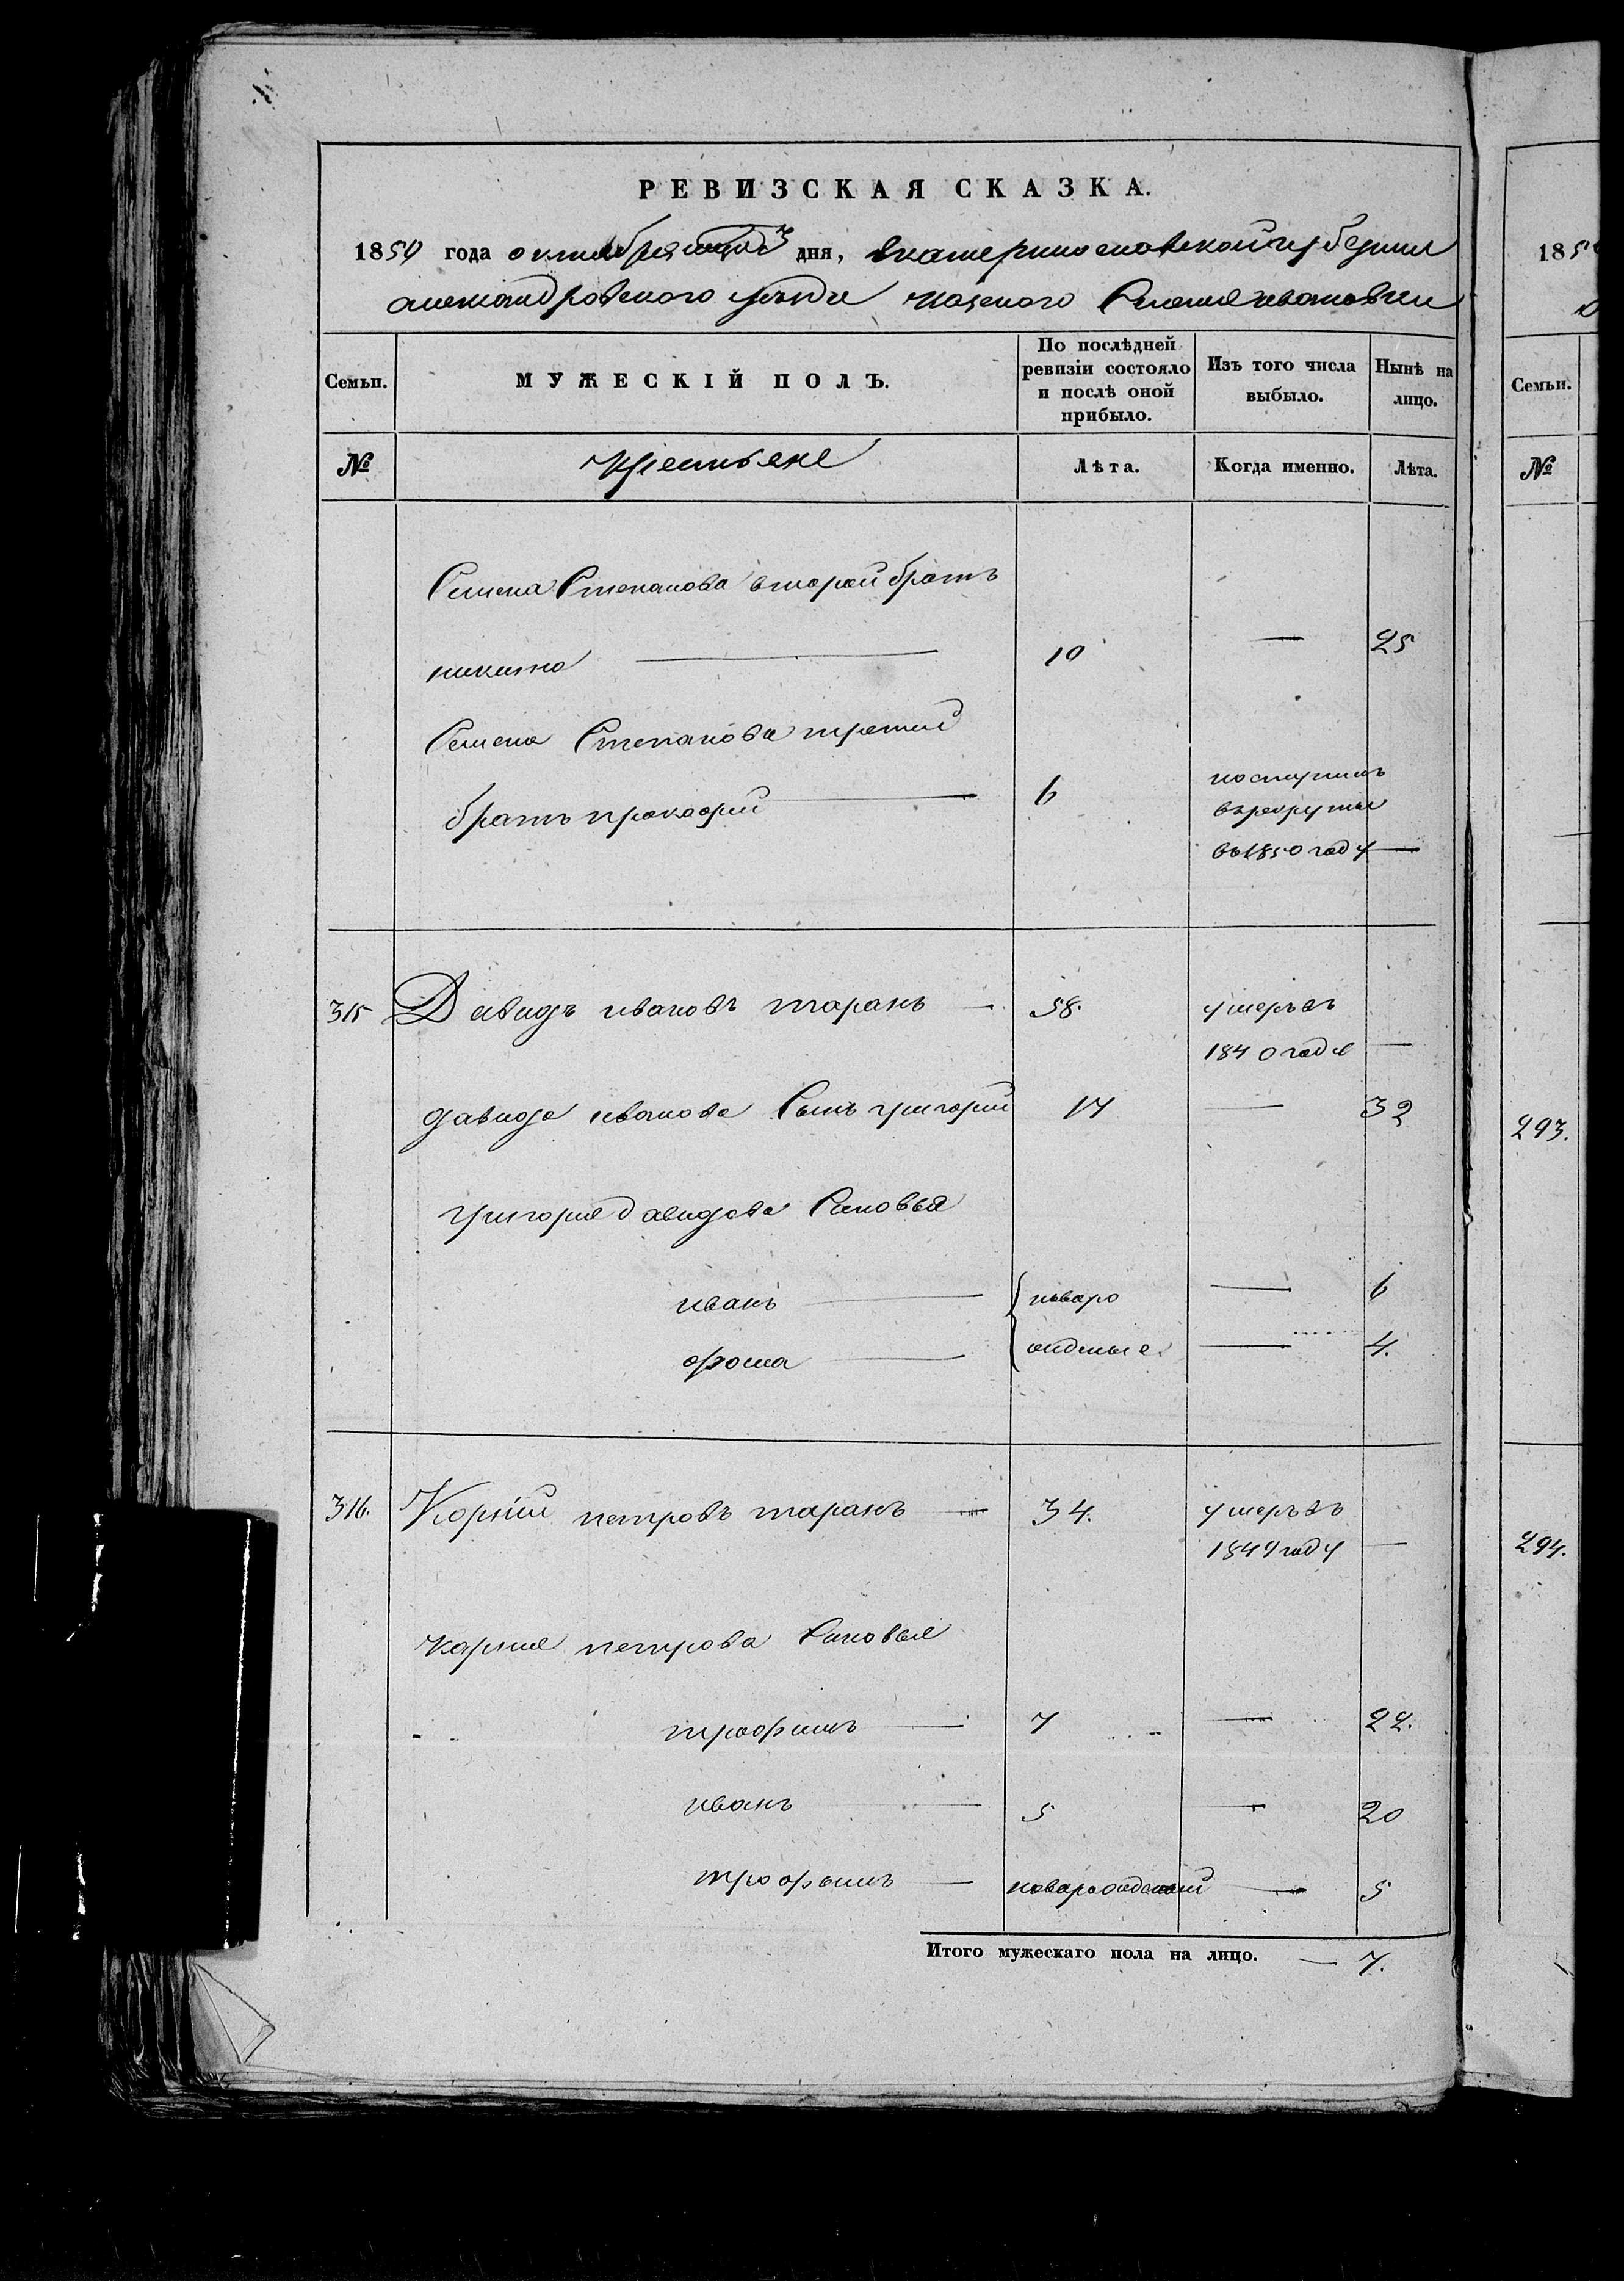 РЕВИЗСКАЯ СКАЗКА.
1850 года октября дня, Екатеринославской губернии
александровского уезда казеного Селения ивановки
Семьи. МУЖЕСКІЙ ПОЛЪ. По послѣдней ревизіи состояло и послѣ оной прибыло. Изъ того числа выбыло. Нынѣ на лицо.
№ Крестьяне Лѣта. Когда именно. Лѣта.
Семена Степанова второй братъ
никита 10 — 25
Семена Степанова третий
братъ прокофий 6 поступилъ
въ рекруты
въ 1850 году —
315 Давидъ ивановъ таранъ — 58. умеръ въ
1840 годе —
давида иванова Сынъ григорий 17 — 32
григория давидова Синовья
иванъ — новоро — 6
фома — жденые — 4.
316. Корний петровъ таранъ — 34. умеръ въ
1849 году —
карния петрова Синовья
трофимъ — 7 — 22.
иванъ — 5 — 20
трофимъ — новорожденый — 5
Итого мужескаго пола на лицо. — 7.
185
Семьи.
№
293.
294.